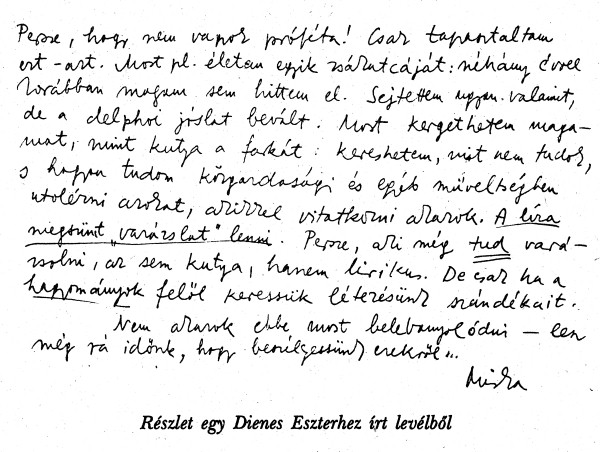 Persze, hogy nem vagyok próféta! Csak tapasztaltam
ezt-azt. Most pl. életem egyik zsákutcáját: néhány évvel
korábban magam sem hittem el. Sejtettem ugyan valamit,
de a delphoi jóslat bevált. Most kergethetem maga-
mat, mint kutya a farkát: kereshetem, mit nem tudok,
s hogyan tudom közgazdasági és egyéb műveltségben
utolérni azokat, akikkel vitatkozni akarok. A líra
megszünt „varázslat” lenni. Persze, aki még tud vará-
zsolni, az sem kutya, hanem lirikus. De csak ha a
hagyományok felől keressük létezésünk szándékait.
Nem akarok ebbe most belebonyolódni – lesz
még rá időnk, hogy beszélgessünk ezekről...
Miska
Részlet egy Dienes Eszterhez írt levélből